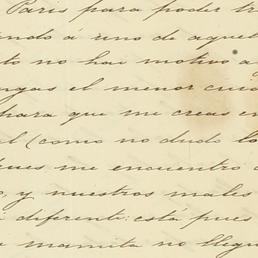 Paris para poder tr
endo á uno de aquel
to no hai motivo a
ngas el menor cuid
para que me creas en
al (como no dudo lo
pues me encuentro d
o, y nuestros males
i diferente: está pues
a mamita no llegu